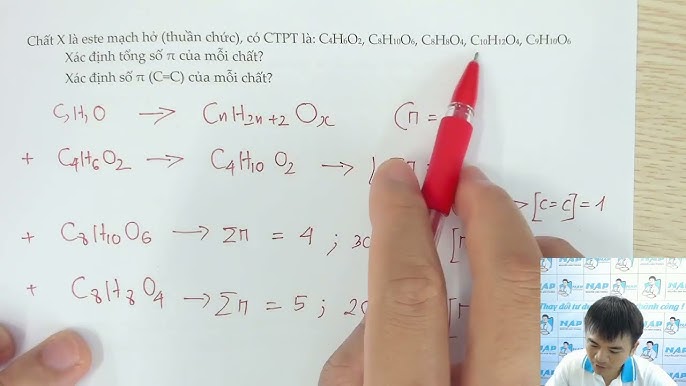 Chất X là este mạch hở (thuần chức), có CTPT là: C₄H₆O₂, C₈H₁₀O₆, C₈H₈O₄, C₁₀H₁₂O₄, C₉H₁₀O₆
Xác định tổng số π của mỗi chất?
Xác định số π (C=C) của mỗi chất?
C,H,O → CnH2n+2 Ox (π =
+ C₄H₆O₂ → C₄H₁₀O₂ → → [C=C] = 1
+ C₈H₁₀O₆ → Σπ = 4 ; 3C [π
+ C₈H₈O₄ → Σπ = 5 ; 2C [π
NAP
Thay đổi tư duy
thành công !
NAP
NAP